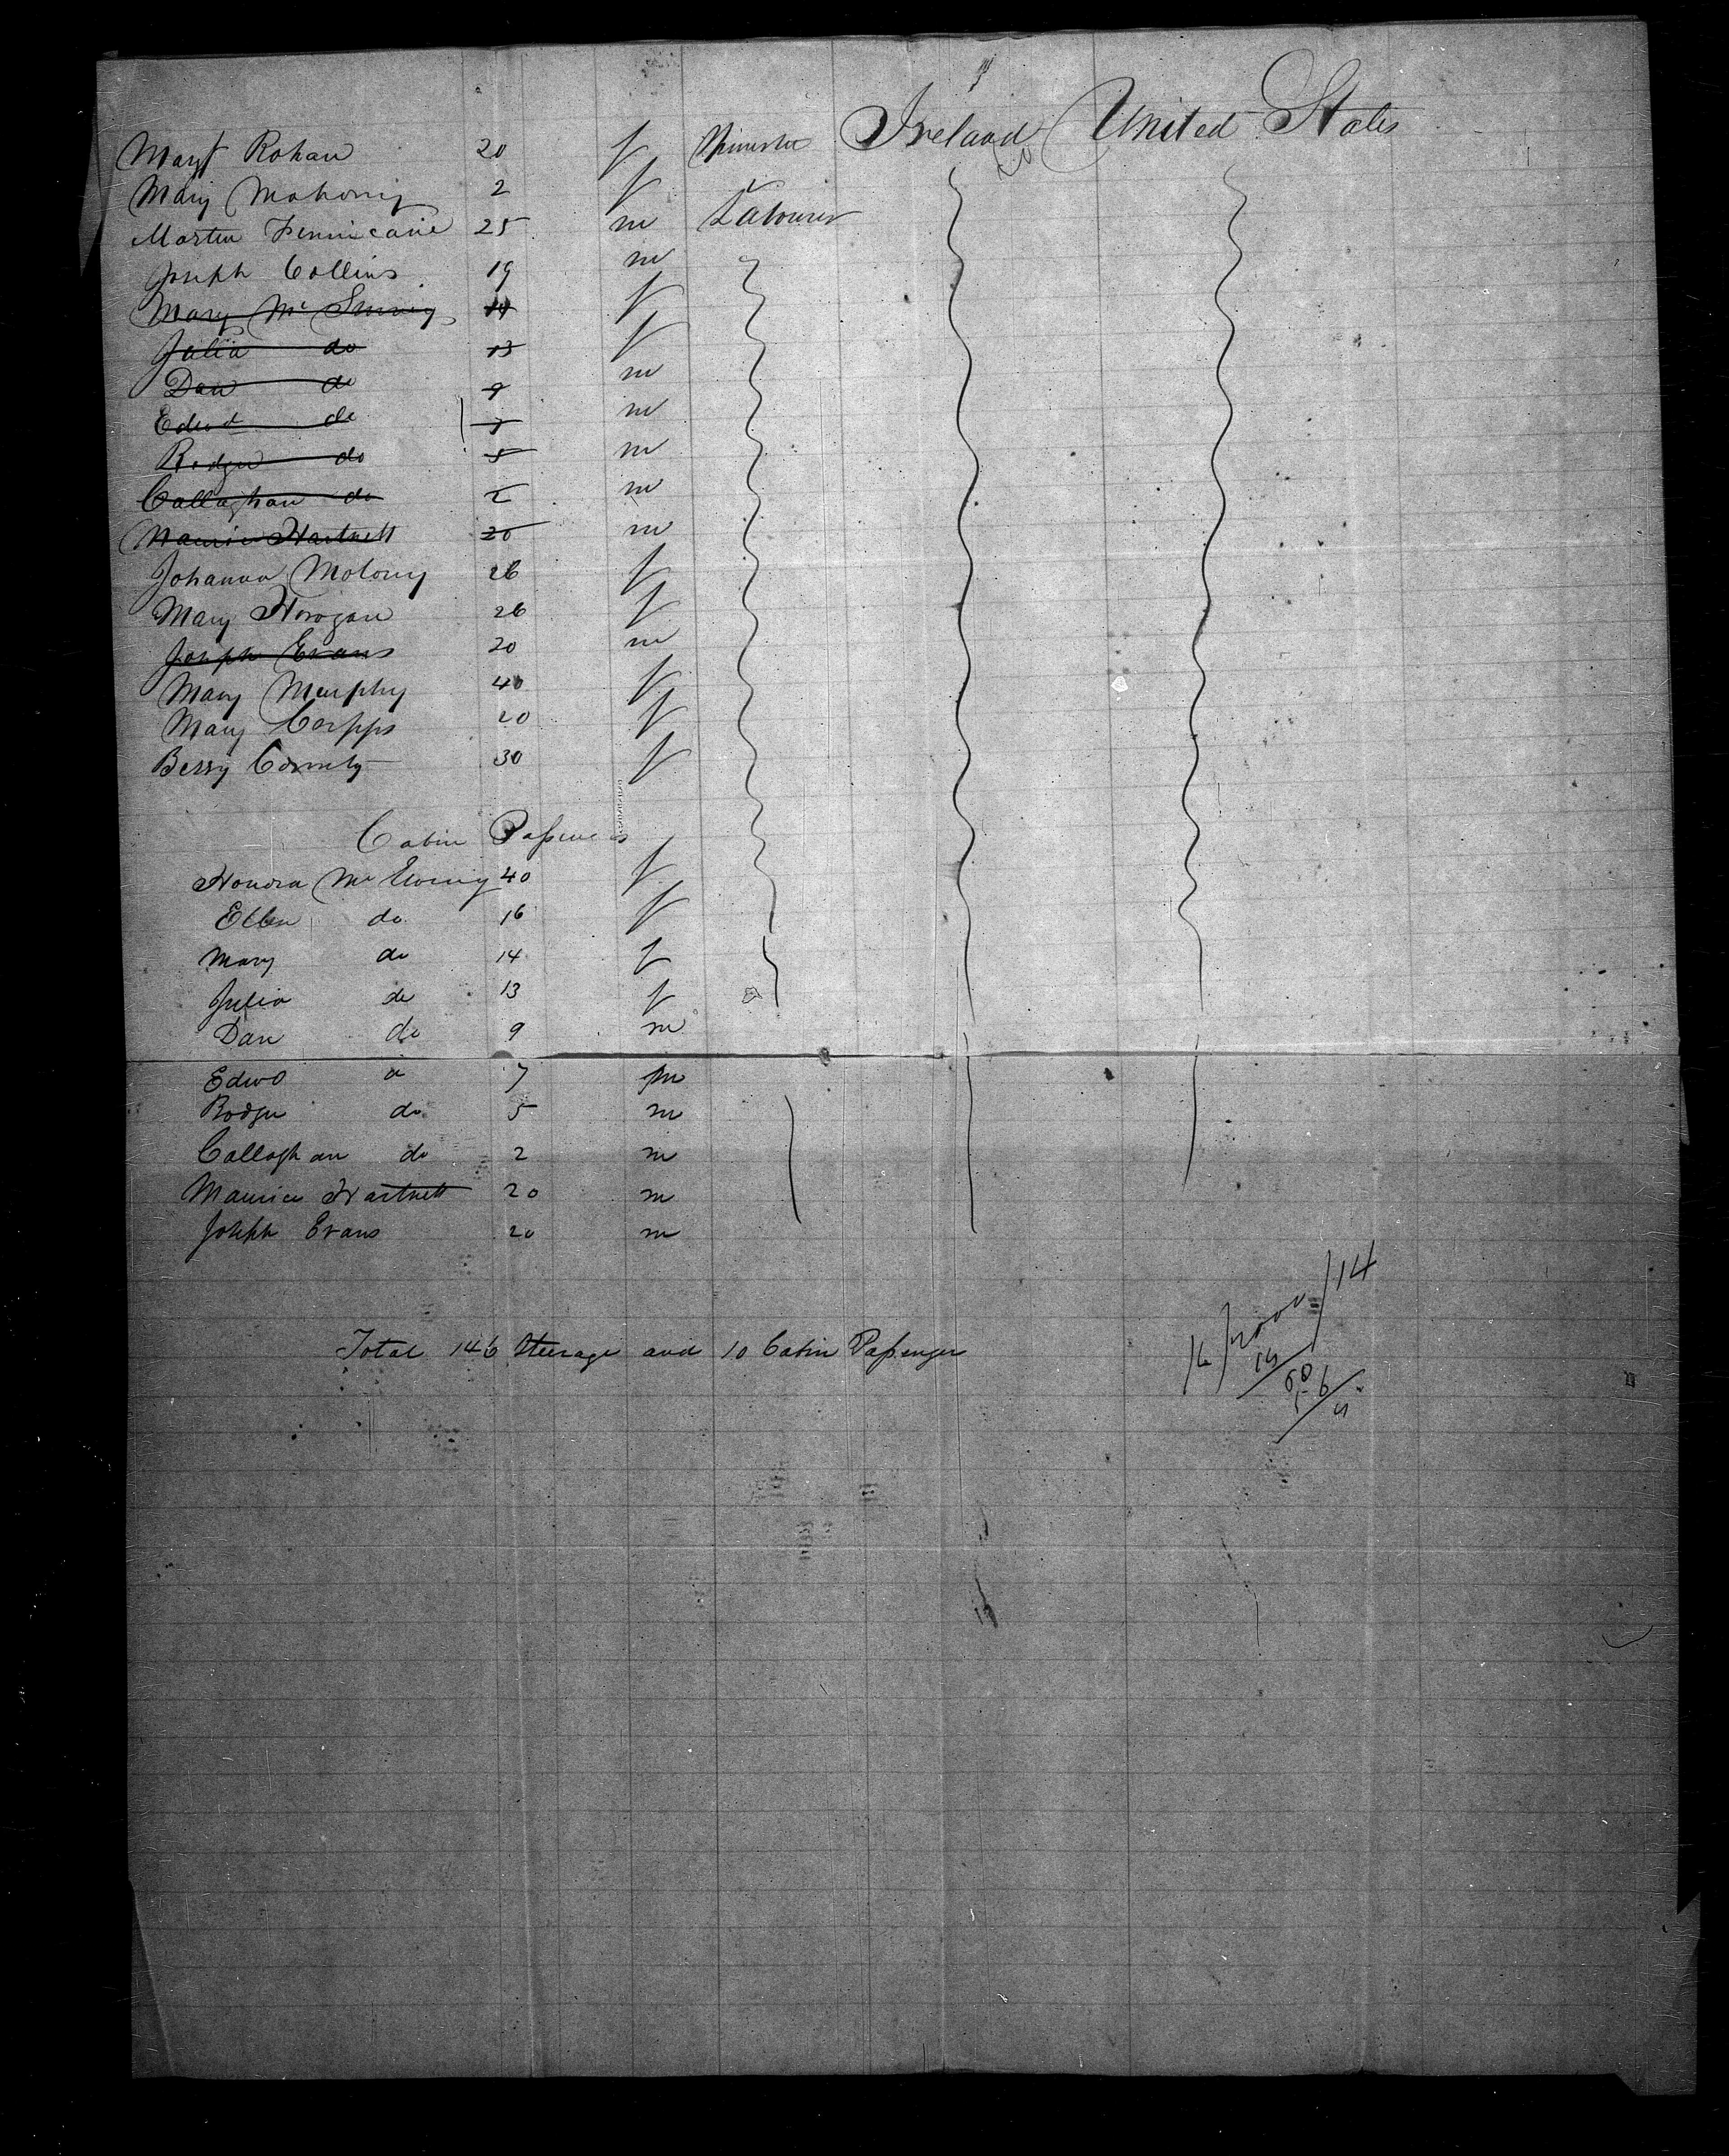 Mary Rohan 20 f Spinster Ireland United States
Mary Mahony 2 f
Martin Finnicane 25 m Labourer
Joseph Collins 19 m
Mary Mc 14 f
Julia do 13 f
Dan do 9 m
Edwd do 7 m
Rodger do 5 m
Callaghan do 2 m
Maurice Hartnett 20 m
Johanna Molony 26 f
Mary Horogan 26 f
Joseph Evans 20 m
Mary Murphy 40 f
Mary Corpps 20 f
Bessy 30 f
Cabin Passengers
Honora Mc 40 f
Ellen do 16 f
Mary do 14 f
Julia do 13 f
Dan do 9 m
Edwd do 7 m
Rodger do 5 m
Callaghan do 2 m
Maurice Hartnett 20 m
Joseph Evans 20 m
Total 146 Steerage and 10 Cabin Passenger
14